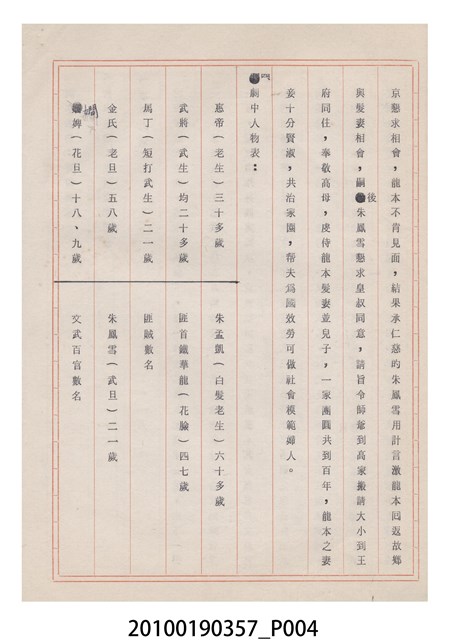 京懇求相會，龍本不肯見面，結果承仁慈的朱鳳雪用計言激龍本回返故鄉
與髮妻相會，嗣後朱鳳雪懇求皇叔同意，請旨令師爺到高家搬請大小到王
府同住，奉敬高母，虔侍龍本髮妻並兒子，一家團圓共到百年，龍本之妻
妾十分賢淑，共治家園，帮夫為國效勞可做社會模範婦人。
四劇中人物表：
惠帝（老生）三十多歲
朱孟凱（白髮老生）六十多歲
武將（武生）均二十多歲
匪首鐵華龍（花臉）四七歲
馬丁（短打武生）二一歲
匪賊數名
金氏（老旦）五八歲
朱鳳雪（武旦）二一歲
嫺婢（花旦）十八、九歲
文武百官數名
20100190357_P004